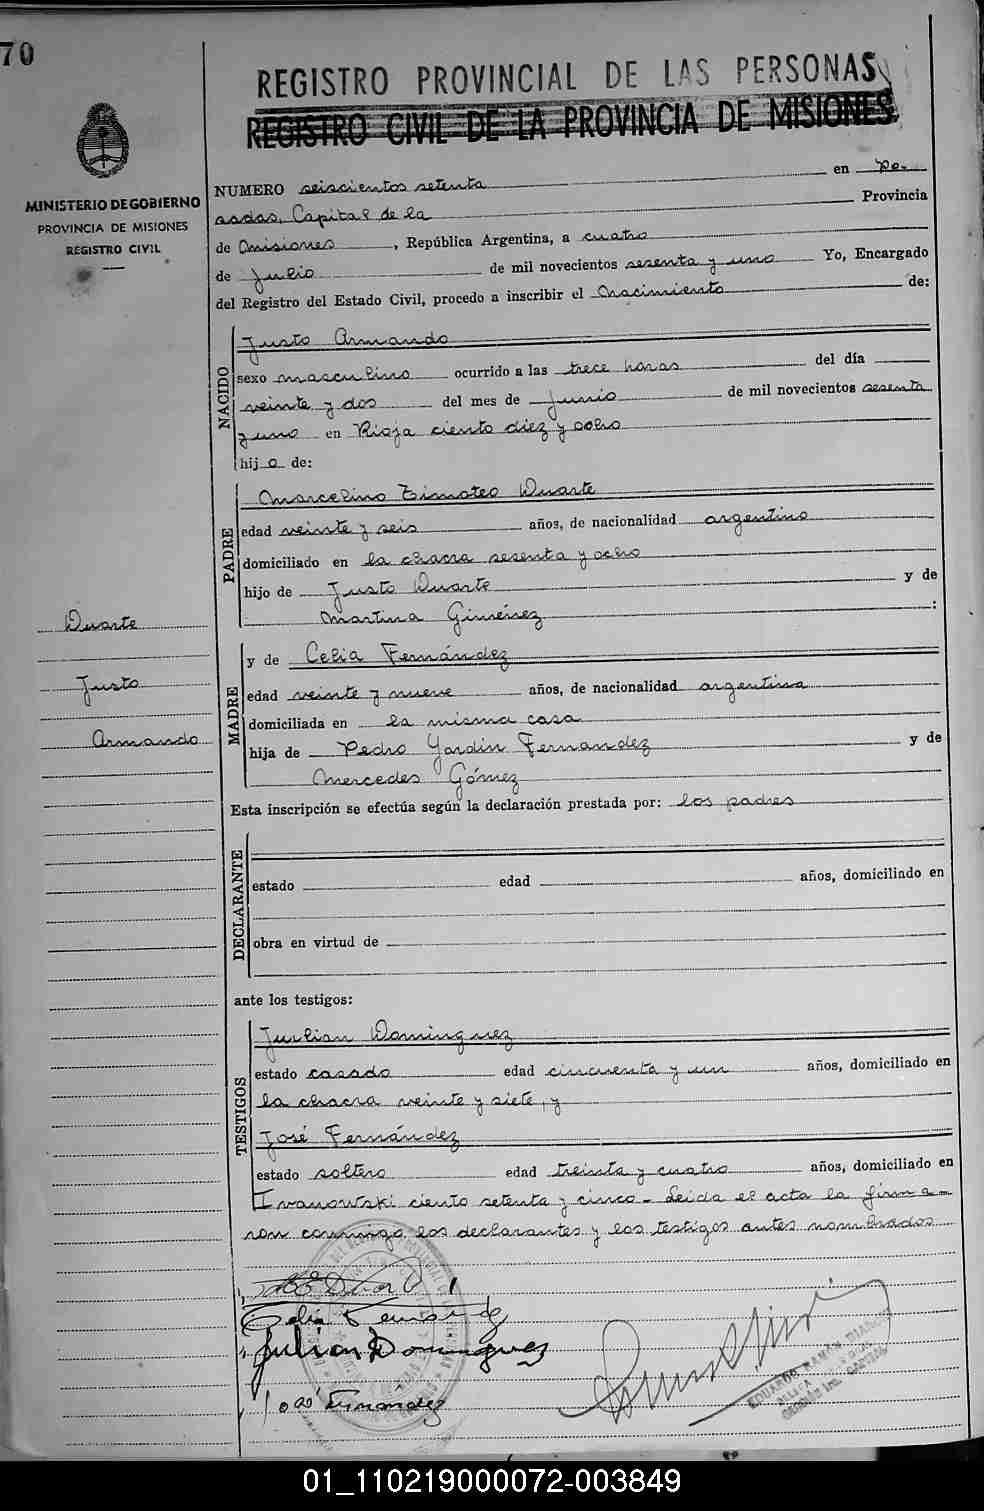 70
REGISTRO PROVINCIAL DE LAS PERSONAS
REGISTRO CIVIL DE LA PROVINCIA DE MISIONES
MINISTERIO DE GOBIERNO
PROVINCIA DE MISIONES
REGISTRO CIVIL
NUMERO seiscientos setenta en Po-
sadas, Capital de la Provincia
de Misiones, República Argentina, a cuatro
de Julio de mil novecientos sesenta y uno Yo, Encargado
del Registro del Estado Civil, procedo a inscribir el Nacimiento de:
NACIDO
Justo Armando
sexo masculino ocurrido a las trece horas del día
veinte y dos del mes de Junio de mil novecientos sesenta
y uno en Rioja ciento diez y ocho
hijo de:
PADRE
Marcelino Timoteo Duarte
edad veinte y seis años, de nacionalidad argentino
domiciliado en la chacra sesenta y ocho
hijo de Justo Duarte y de
Martina Giménez :
Duarte
Justo
Armando
MADRE
y de Celia Fernández
edad veinte y nueve años, de nacionalidad argentina
domiciliada en la misma casa
hija de Pedro Yardin Fernandez y de
Mercedes Gómez
Esta inscripción se efectúa según la declaración prestada por: los padres
DECLARANTE
estado edad años, domiciliado en
obra en virtud de
ante los testigos:
TESTIGOS
Julian Dominguez
estado casado edad cincuenta y un años, domiciliado en
la chacra veinte y siete, y
José Fernández
estado soltero edad treinta y cuatro años, domiciliado en
Ivanowski ciento setenta y cinco - Leida el acta la firma-
ron conmigo los declarantes y los testigos antes nombrados
Celia Fernandez
Julian Dominguez
José Fernandez
EDUARDO RAMÓN
01_110219000072-003849